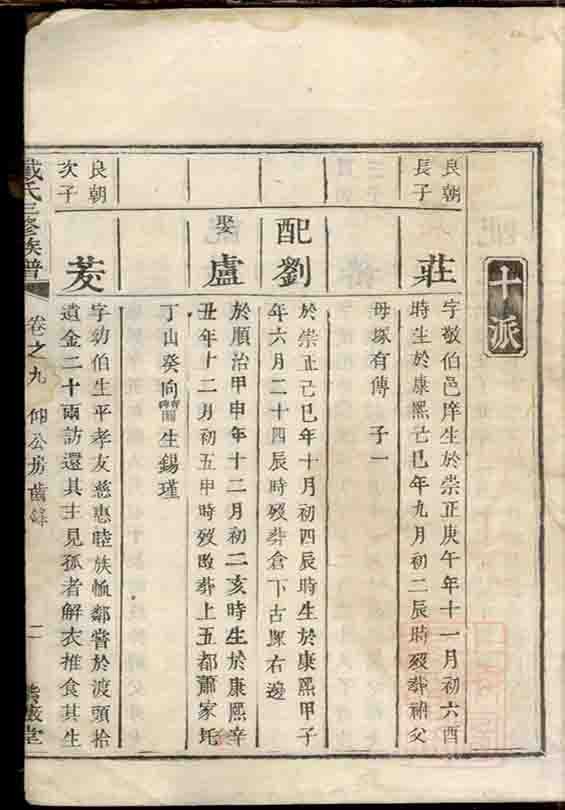 十派
良朝
長子
莊
字敬伯邑庠生於崇正庚午年十一月初六酉
時生於康熙己巳年九月初二辰時歿葬祔父
母塚有傳 子一
配劉
於崇正己巳年十月初四辰時生於康熙甲子
年六月二十四辰時歿葬倉下古塚右邊
娶盧
於順治甲申年十二月初二亥時生於康熙辛
丑年十二月初五申時歿葬上五都蕭家圫
丁山癸向 生錫瑾
良朝
次子
菱
字幼伯生平孝友慈惠睦族恤鄰嘗於渡頭拾
遺金二十兩訪還其主見孤者解衣推食其生
戴氏三修族譜
卷之九 仲公房齒錄 二 堂